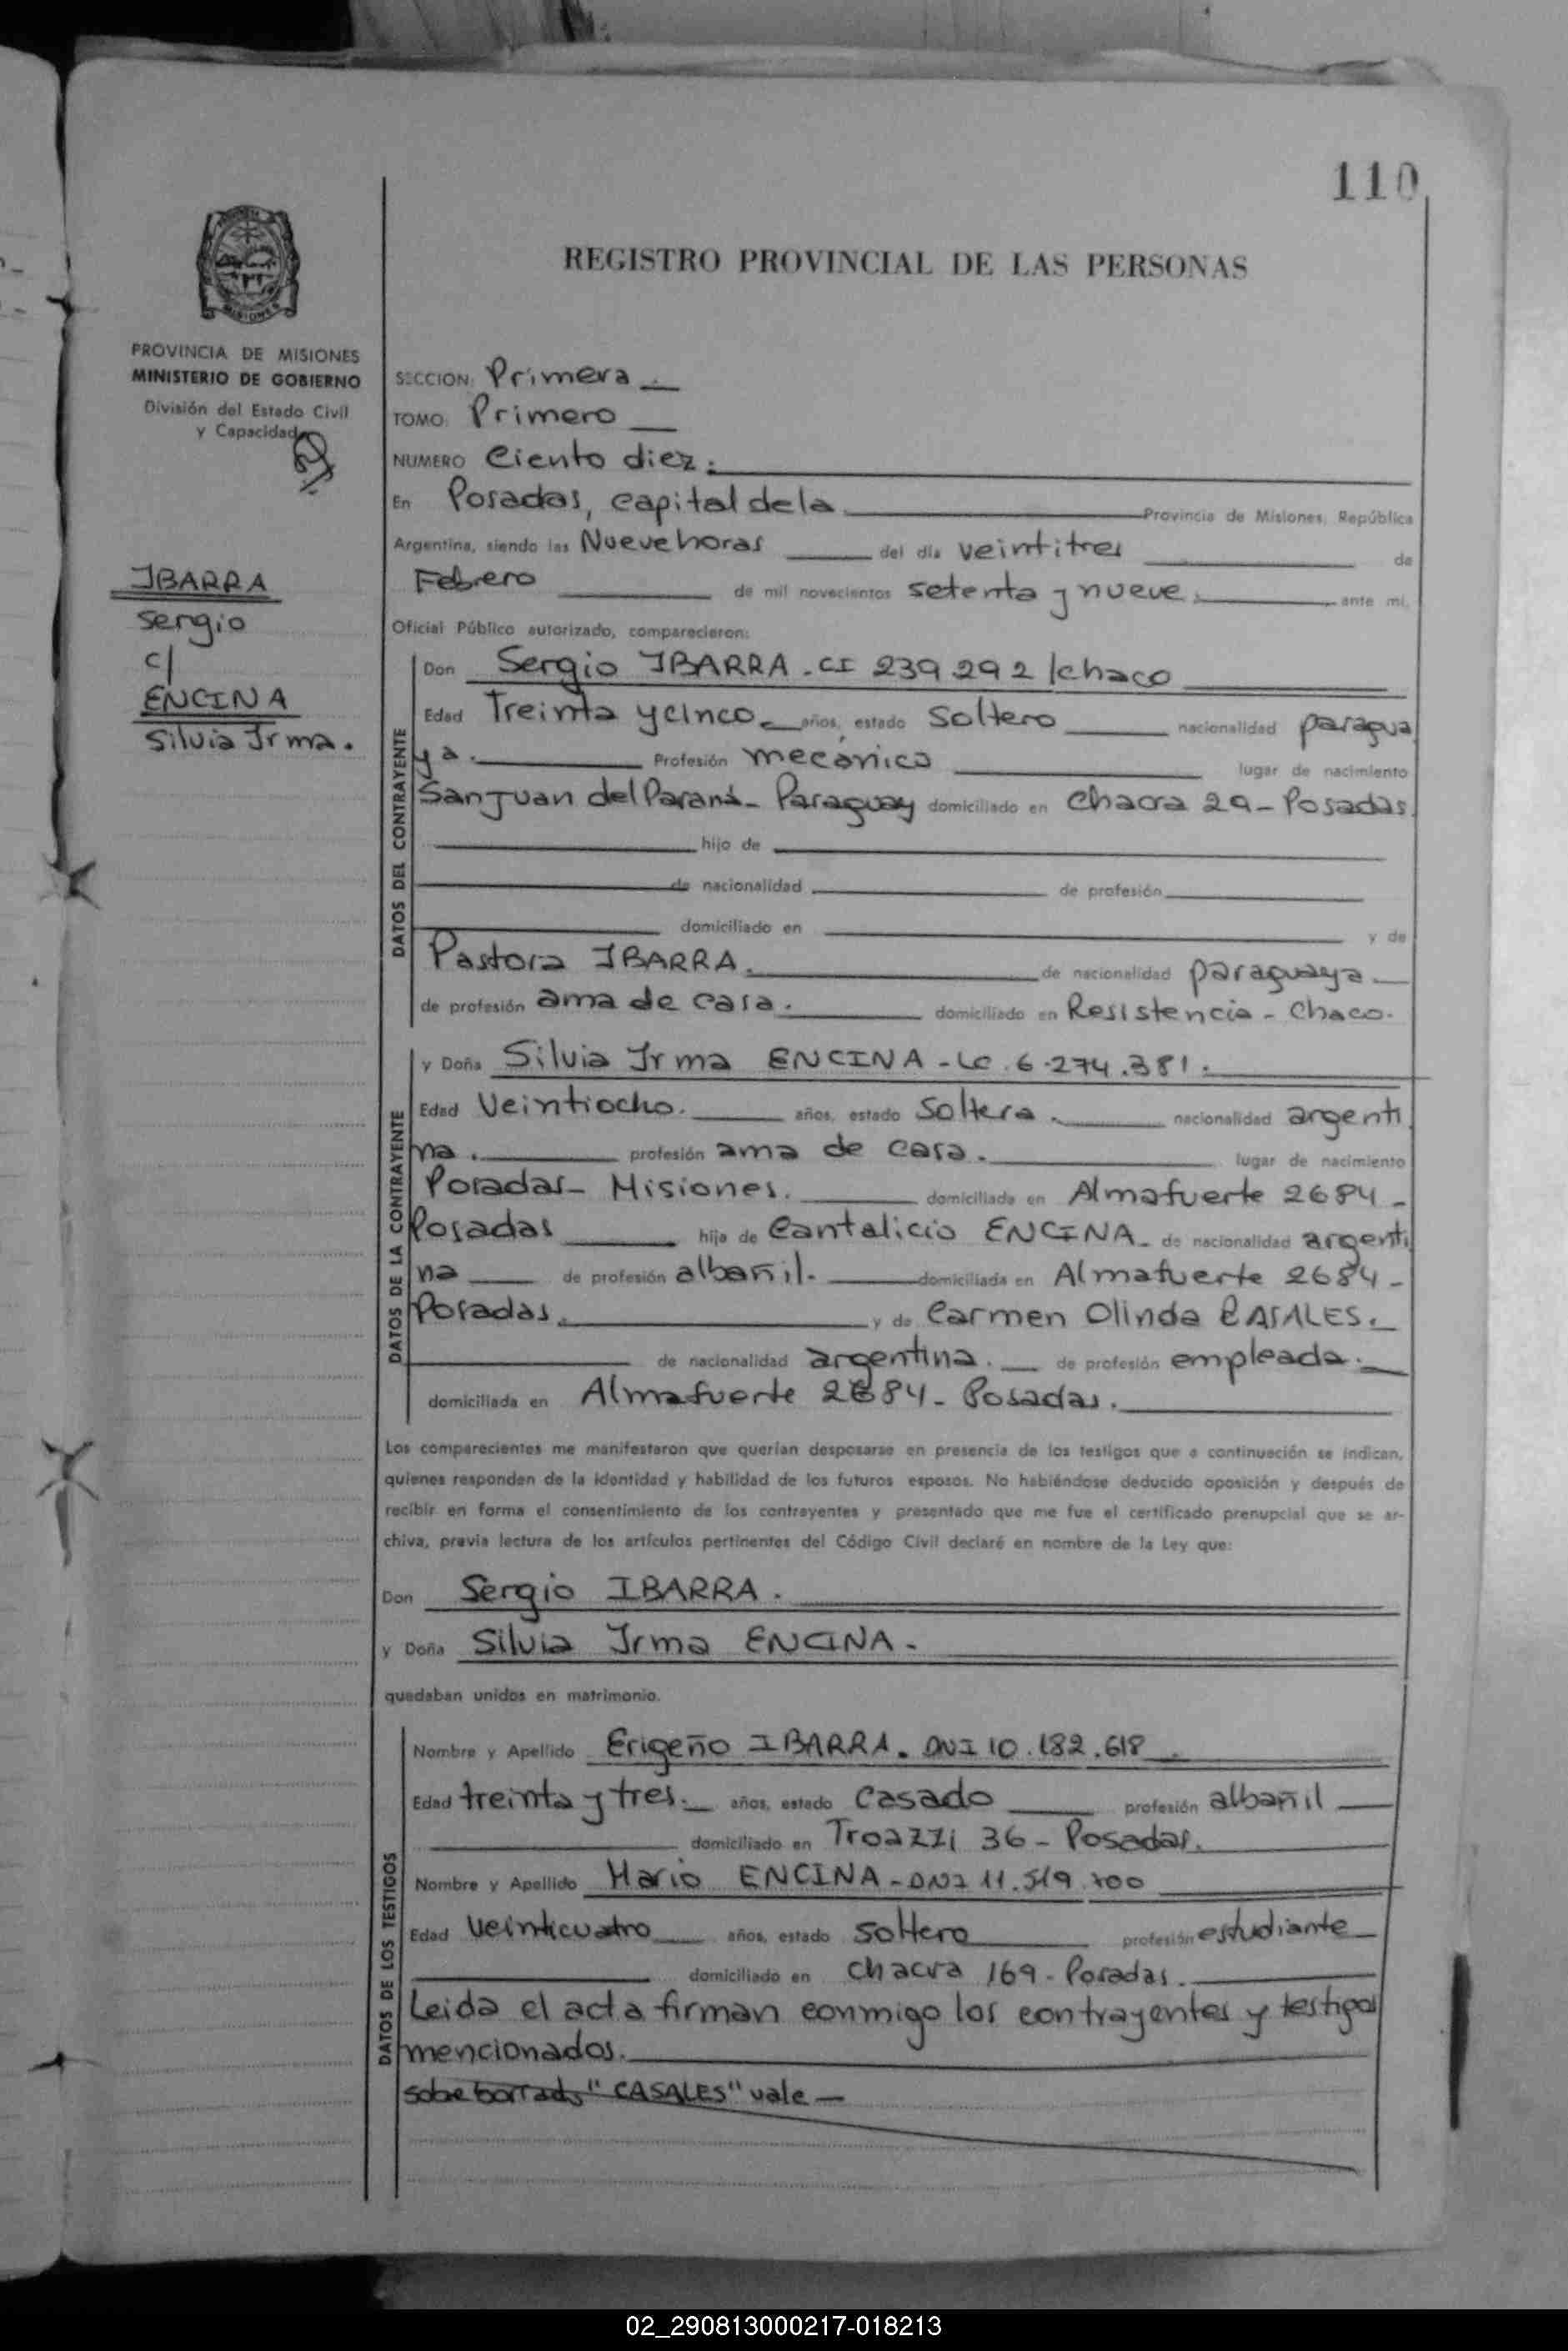 110
REGISTRO PROVINCIAL DE LAS PERSONAS
PROVINCIA DE MISIONES
MINISTERIO DE GOBIERNO
División del Estado Civil
y Capacidad
IBARRA
Sergio
c/
ENCINA
Silvia Irma.
SECCION: Primera
TOMO: Primero
NUMERO Ciento diez.
En Posadas, capital de la Provincia de Misiones, República
Argentina, siendo las Nueve horas del día veintitres de
Febrero de mil novecientos setenta y nueve. ante mí,
Oficial Público autorizado, comparecieron:
DATOS DEL CONTRAYENTE
Don Sergio IBARRA - CI 239.292 /chaco
Edad Treinta y cinco años, estado Soltero nacionalidad paragua
ya. Profesión mecánico lugar de nacimiento
San Juan del Paraná - Paraguay domiciliado en Chacra 29 - Posadas.
hijo de
de nacionalidad de profesión
domiciliado en y de
Pastora IBARRA. de nacionalidad paraguaya
de profesión ama de casa. domiciliado en Resistencia - Chaco.
DATOS DE LA CONTRAYENTE
y Doña Silvia Irma ENCINA - LC. 6.274.381.
Edad Veintiocho. años, estado Soltera. nacionalidad argenti
na. profesión ama de casa. lugar de nacimiento
Posadas - Misiones. domiciliada en Almafuerte 2684 -
Posadas hija de Cantalicio ENCINA - de nacionalidad argenti
na de profesión albañil. domiciliada en Almafuerte 2684 -
Posadas. y de Carmen Olinda CASALES.
de nacionalidad argentina. de profesión empleada.
domiciliada en Almafuerte 2684 - Posadas.
Los comparecientes me manifestaron que querían desposarse en presencia de los testigos que a continuación se indican,
quienes responden de la identidad y habilidad de los futuros esposos. No habiéndose deducido oposición y después de
recibir en forma el consentimiento de los contrayentes y presentado que me fue el certificado prenupcial que se ar-
chiva, previa lectura de los artículos pertinentes del Código Civil declaré en nombre de la Ley que:
Don Sergio IBARRA.
y Doña Silvia Irma ENCINA -
quedaban unidos en matrimonio.
DATOS DE LOS TESTIGOS
Nombre y Apellido Erigeño IBARRA. DNI 10.182.618
Edad treinta y tres. años, estado Casado profesión albañil
domiciliado en Troazzi 36 - Posadas.
Nombre y Apellido Mario ENCINA - DNI 11.519.
Edad veinticuatro años, estado soltero profesión estudiante
domiciliado en chacra 169 - Posadas.
Leida el acta firman conmigo los contrayentes y testigos
mencionados.
sobre borrado "CASALES" vale
02_290813000217-018213